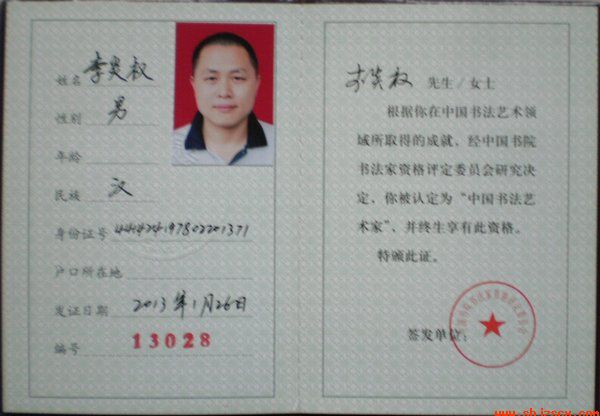 姓名 李炎权
性别 男
年龄
民族 汉
身份证号
户口所在地
发证日期 2013年1月26日
编号 13028
李炎权 先生/女士
根据你在中国书法艺术领
域所取得的成就，经中国书院
书法家资格评定委员会研究决
定，你被认定为“中国书法艺
术家”，并终生享有此资格。
特颁此证。
签发单位：